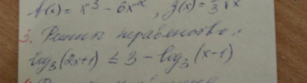 f(x) = x³ - 6xˣ, g(x) = 3√x
3. Решить неравенство:
log₃(2x+1) ≤ 3 - log₃(x-1)